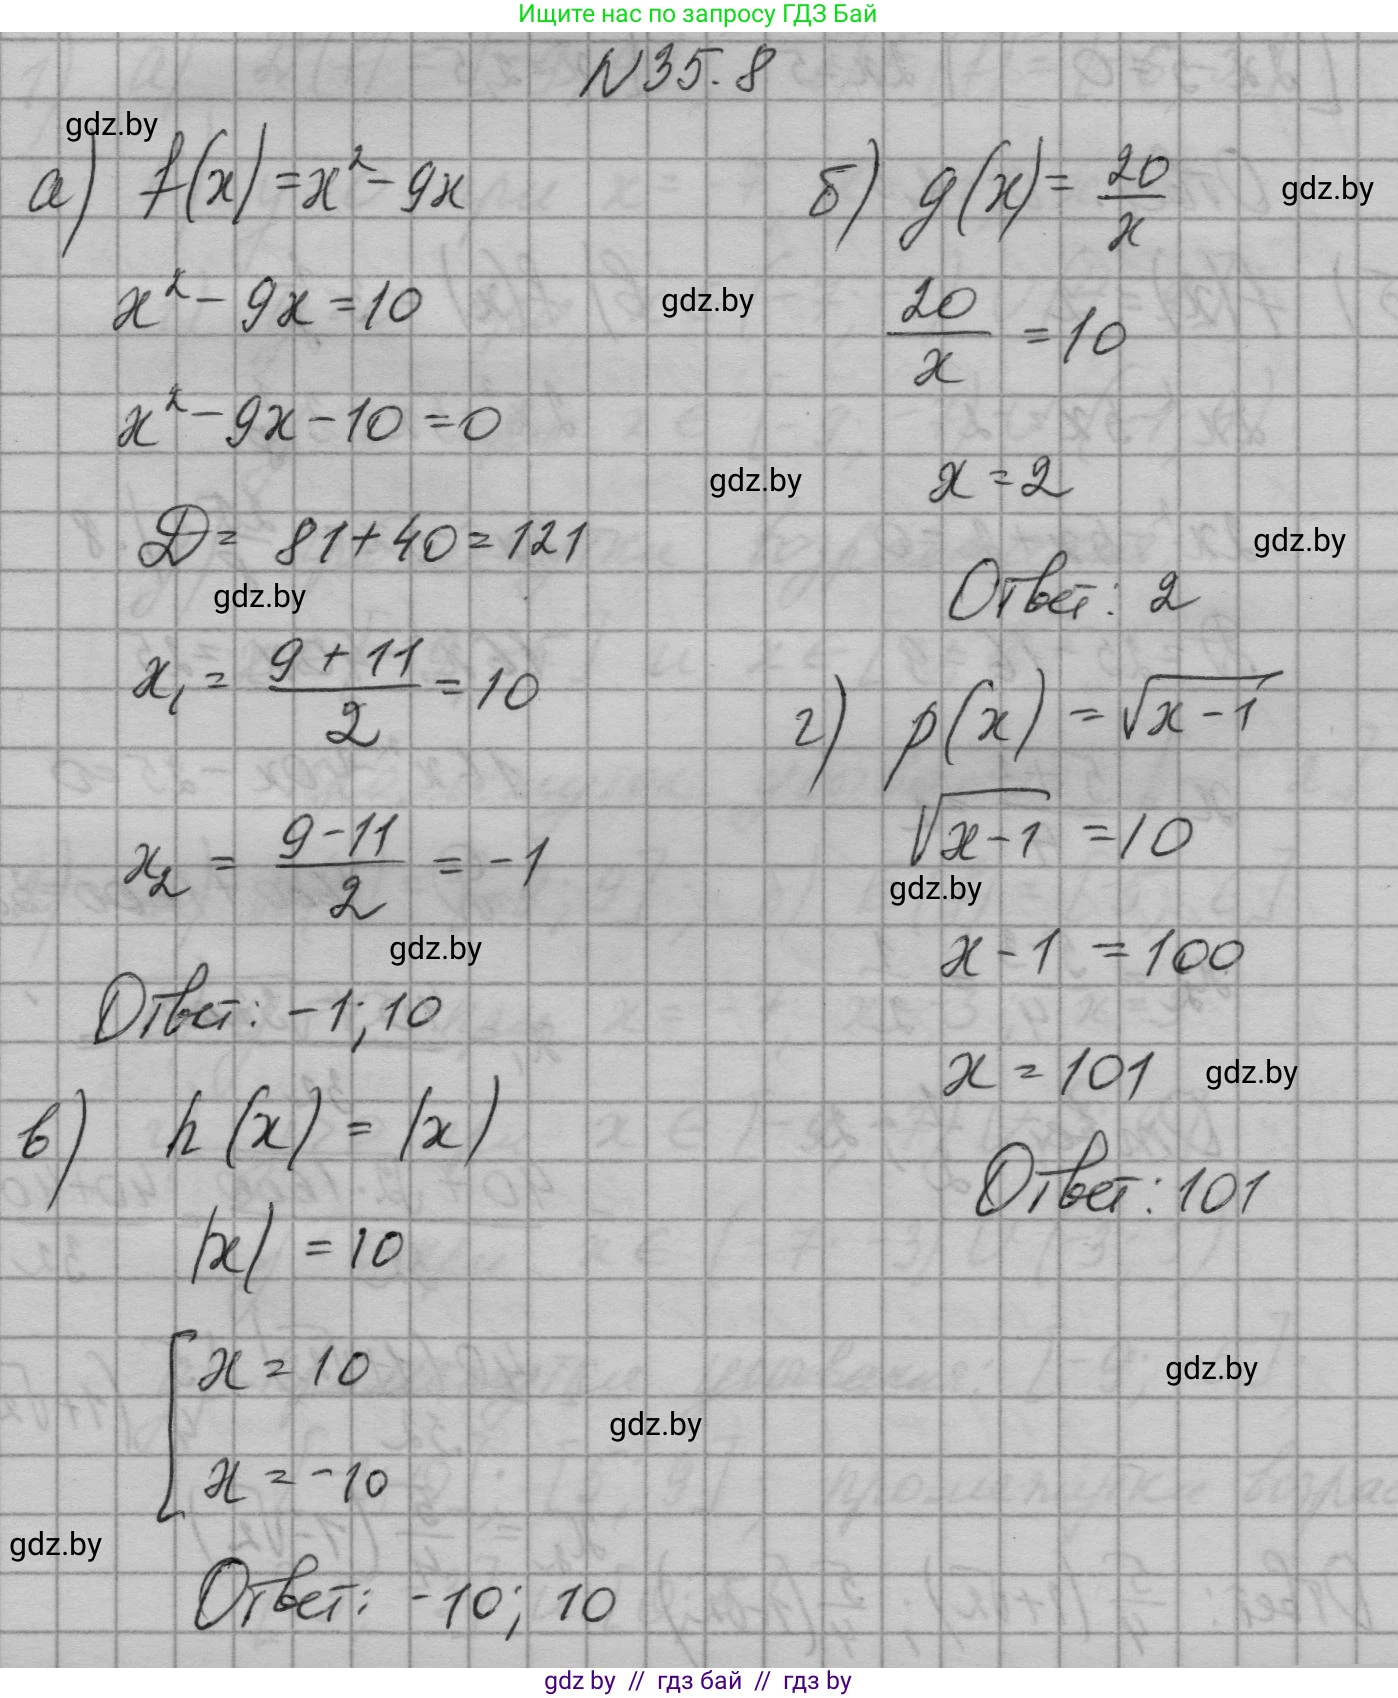 Ищите нас по запросу ГДЗ Бай
N 35.8
gdz.by
а) f(x) = x² - 9x
x² - 9x = 10
x² - 9x - 10 = 0
D = 81 + 40 = 121
gdz.by
x₁ = (9 + 11)/2 = 10
x₂ = (9 - 11)/2 = -1
gdz.by
Ответ: -1; 10
б) g(x) = 20/x
gdz.by
gdz.by
20/x = 10
gdz.by
x = 2
gdz.by
Ответ: 2
в) h(x) = |x|
|x| = 10
[ x = 10
x = -10
gdz.by
gdz.by
Ответ: -10; 10
г) p(x) = √(x - 1)
√(x - 1) = 10
gdz.by
x - 1 = 100
x = 101
gdz.by
Ответ: 101
gdz.by
gdz by // гдз бай // гдз by